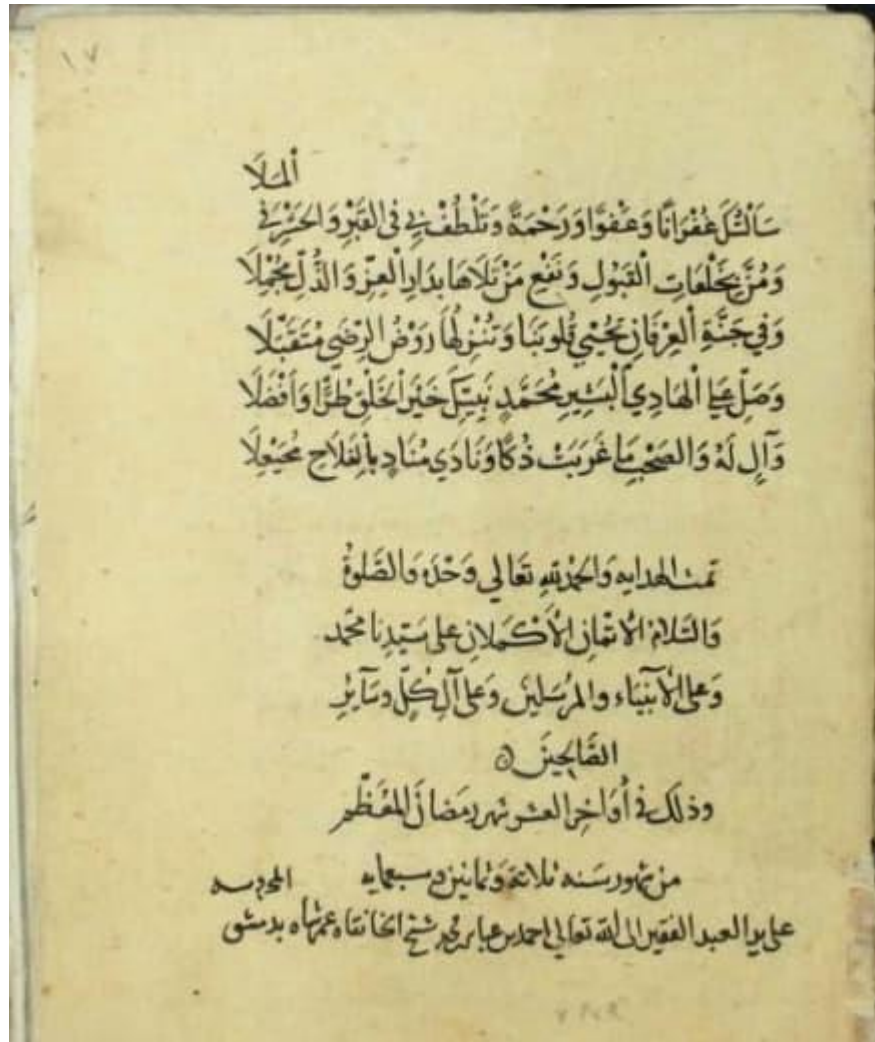 ١٧
ٱلمَلَا
سَأَلْتُكَ غُفْرَانًا وَعَفْوًا وَرَحْمَةً وَتَلْطُفْ بِي فِي القَبْرِ وَالحَشْرِ فِي
وَمُنَّ بِخَلْعَاتِ القَبُولِ وَنَفْعِ مَنْ تَلَاهَا بِدَارِ العِزِّ وَالذُّلِّ مُجْمِلَا
وَفِي جَنَّةِ العِرْفَانِ تُحْيِي قُلُوبَنَا وَتُنْزِلُهَا رَوْضُ الرِّضَى مُتَقَبِّلَا
وَصَلِّ عَلَى الهَادِي البَشِيرِ مُحَمَّدٍ نَبِيِّكَ خَيْرِ الخَلْقِ طُرًّا وَأَفْضَلَا
وَآلٍ لَهُ وَالصَّحْبِ مَا غَرَبَتْ ذُكَا وَنَادَي مُنَادٍ بِالفَلَاحِ مُحَيْعِلَا
تمت الهدايه وَالحَمْدُ لِلهِ تَعَالَي وَحْدَهُ وَالصَّلوٰةُ
وَالسَّلَامُ الأَتَمَّانِ الأَكْمَلَانِ عَلى سَيِّدِنَا مُحَمَّد
وَعَلَى الأَنْبِيَاء وَالمُرْسَلِينَ وَعَلَى آلِ كُلٍّ وَسَآيِرِ
الصَّالِحِينَ ۞
وذلك في أَوَاخِرِ العشر شهر رمَضانَ المُعَظَّم
من شهور سَنه ثلاثة وَثمانين وسبعمايه
على يد العبد الفقير الى الله تعالى احمد بن شيخ الخانقاه عمرشاه بدمشق